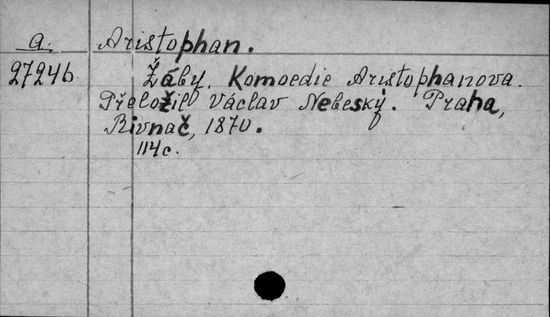 a. Aristophan.
27246 Žáby. Komoedie Aristophanova.
Přeložil Václav Nebeský. Praha,
Rivnač, 1870.
114c.